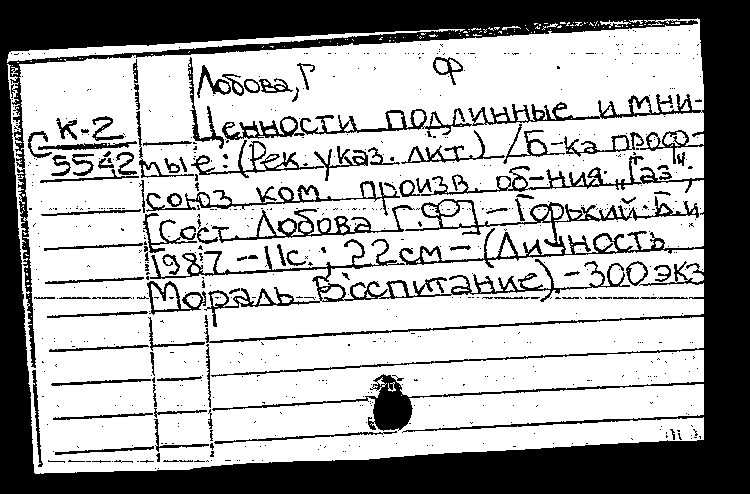 Лобова, Г Ф
К-2
С Ценности подлинные и мни-
5542 мые: (Рек. указ. лит.) / Б-ка проф-
союз. ком. произв. об-ния „Газ";
[Сост. Лобова Г.Ф.] – Горький: Б.и
1987. – 11с.; 22 см – (Личность.
Мораль. Воспитание). – 300 экз